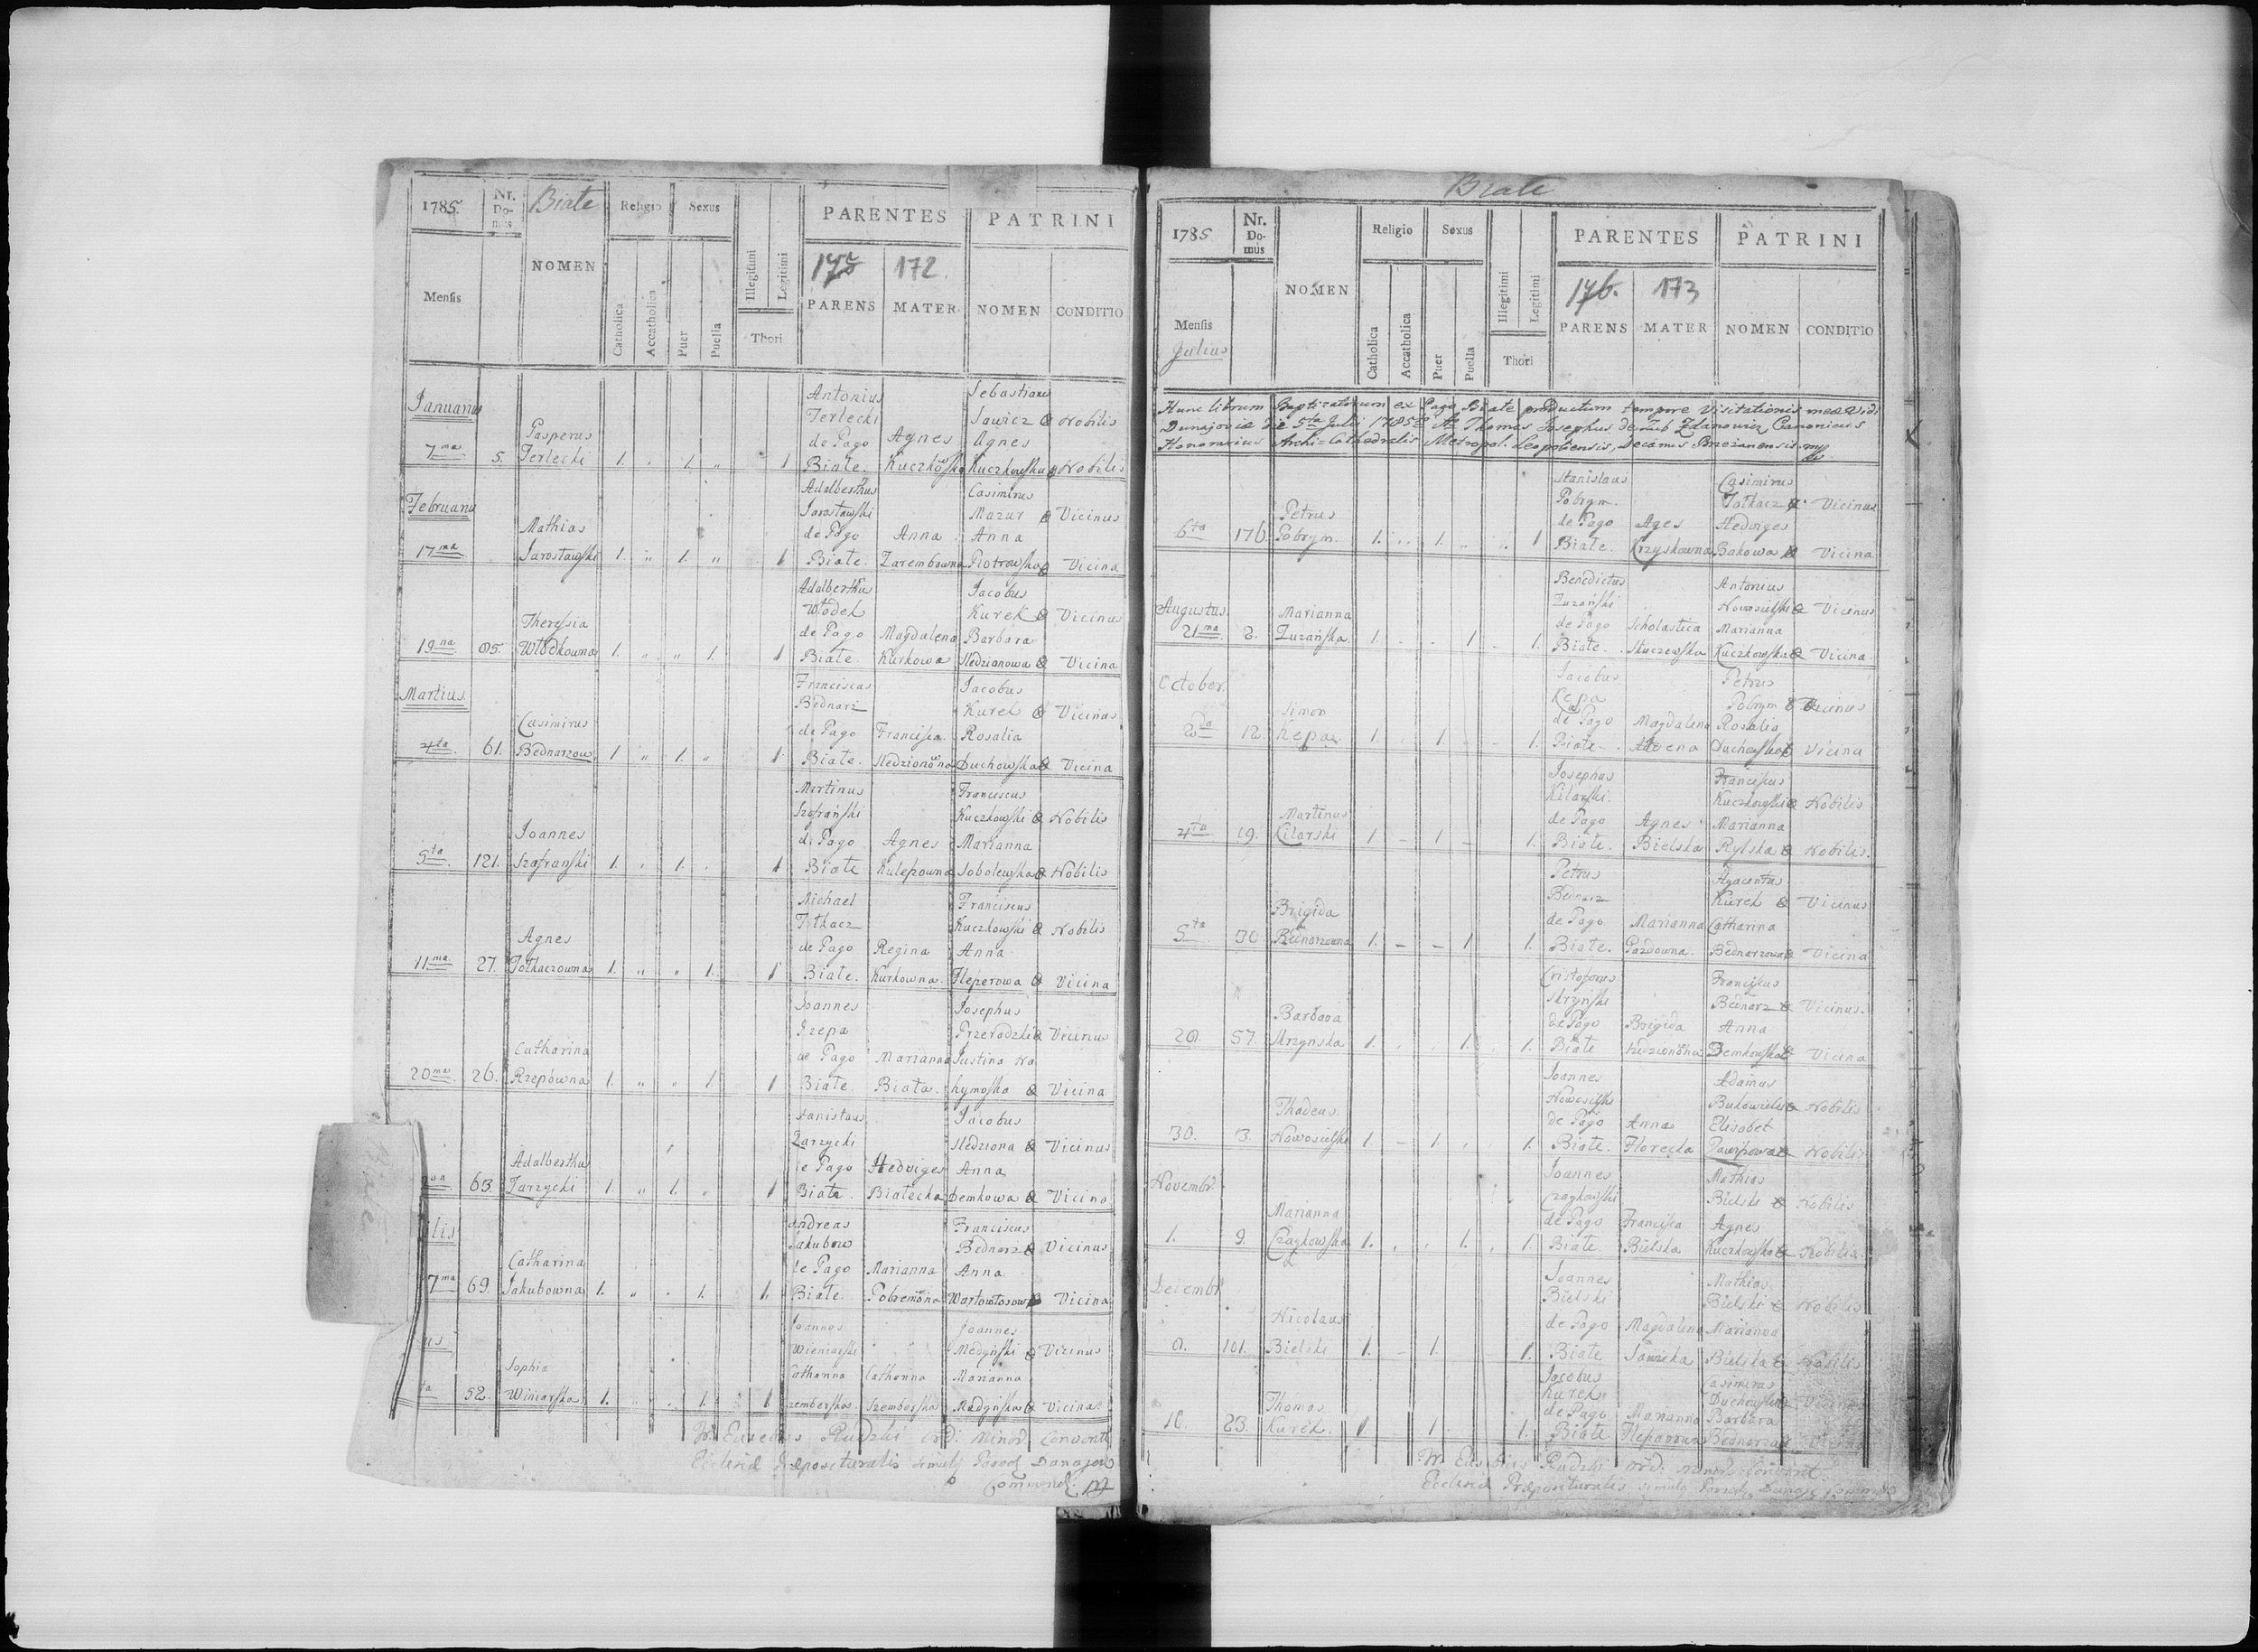 1785.
Nr. Do- mus
Biate
Religio
Sexus
Illegitimi
Legitimi
PARENTES
PATRINI
Mensis
NOMEN
Catholica
Accatholica
Puer
Puella
Thori
175
172.
PARENS
MATER
NOMEN
CONDITIO
Januarius
Antonius Sebastianus
Terlecki Sawicz & Nobilis
Gasperus de Pago Agnes Agnes
7ma 5. Terlecki 1. „ 1. „ 1 Biate. Kuczkowska Kuczkowska & Nobilis
Februarius
Adalberthus Casimirus
Jarosławski Mazur & Vicinus
Mathias de Pago Anna Anna
17ma Jarosławski 1. „ 1. „ 1 Biate. Zarembowna Piotrowska & Vicina
Adalberthus Jacobus
Włodek Kurek & Vicinus
Theresia de Pago Magdalena Barbara
19na 85. Włodkowna 1. „ „ 1. 1 Biate Kurkowa Sledzionowa & Vicina
Martius
Franciscus Jacobus
Bednarz Kurek & Vicinus
Casimirus de Pago Francisca Rosalia
4ta 61. Bednarzow 1 „ 1. „ 1 Biate. Sledzionowna Duchowska & Vicina
Martinus Franciscus
Szafrański Kuczkowski & Nobilis
Joannes de Pago Agnes Marianna
5ta 121. Szafranski 1. „ 1. 1 Biate Kulepowna Sobolewska & Nobilis
Michael Franciscus
Tołkacz Kuczkowski & Nobilis
Agnes de Pago Regina Anna
11ma 27. Tołkaczowna 1. „ „ 1. 1 Biate. Kurkowna. Fleperowa & Vicina
Joannes Josephus
Rzepa Przeradzki & Vicinus
Catharina de Pago Marianna Justina Ha
20ma 26. Rzepówna 1. „ „ 1. 1 Biate. Biała. hymoska & Vicina
Stanislaus Jacobus
Zarzycki Sledziona & Vicinus
Adalberthus de Pago Hedviges Anna
63. Zarzycki 1. „ 1. 1 Biate. Białecka Demkowa & Vicina
ilis
Andreas Franciscus
Jakubow Bednarz & Vicinus
Catharina de Pago Marianna Anna
7ma 69. Jakubowna 1. „ 1. 1. Biate. Pobremowna Wartołosow & Vicina
us
Joannes Joannes
Winiarski Medyński & Vicinus
Sophia Catharina Catharina Marianna
ta 52. Winiarska 1. 1. 1 Szemberska. Szemberska Medyńska & Vicina
Fr. Eusebius Rudzki Ord: Minor: Convent:
Ecclesiæ Præposituralis simul Paroch Dunajow
Comend: mp
Biate
1785
Nr. Do- mus
NOMEN
Religio
Sexus
Illegitimi
Legitimi
PARENTES
PATRINI
Mensis
Julius
Catholica
Accatholica
Puer
Puella
Thori
176.
173
PARENS
MATER
NOMEN
CONDITIO
Hunc librum Baptizatorum ex Pago Biate productum tempore Visitationis meæ Vidi
Dunajoviæ die 5ta Julii 1785to Ao Thomas Josephus de Zub Zdanowicz Canonicus
Honorarius Archi-Cathedralis Metropol. Leopoliensis, Decanus Brzezanensis. mp
Stanislaus Casimirus
Pobrym Tołkacz & Vicinus
Petrus de Pago Ages Hedviges
6ta 176. Pobrym. 1. 1. 1 Biate. Krzyskowna Bakowa & Vicina
Benedictus Antonius
Augustus Zuzański Nowosielski & Vicinus
Marianna de Pago Scholastica Marianna
21ma 2. Zuzańska 1 1 1. Biate. Skuczewska Kuczkowska & Vicina
October.
Jacobus Petrus
Kepa Pobrym & Vicinus
Simon de Pago Magdalena Rosalia
2da 12. Kepa. 1 1. 1. Biate Duchowska & Vicina
Josephus Franciscus
Kilarski. Kuczkowski & Nobilis
Martinus de Pago Agnes Marianna
4ta 19. Kilarski 1 1 1. Biate. Bielska Rylska & Nobilis.
Petrus Hyacentus
Bednarz Kurek & Vicinus
Brigida de Pago Marianna Catharina
5ta 30 Bednarzowna 1. – – 1 1. Biate. Pazdowna. Bednarzowa & Vicina
Cristoforus Franciscus
Skrzynski Bednarz & Vicinus.
Barbara de Pago Brigida Anna
20. 57. Skrzynska 1. 1. 1. Biate Demkowska & Vicina
Joannes Adamus
Nowosielski Bukowicki & Nobilis
Thadeus de Pago Anna Elisabet
30. 3. Nowosielski 1. – 1. 1. Biate. Florecka & Nobilis
Novembr.
Joannes Mathias
Czaykowski Bielski & Nobilis
Marianna de Pago Francisca Agnes
1. 9. Czaykowska 1. 1. 1. Biate Bielska Kuczkowska & Nobilis
Decembr
Joannes Mathias
Bielski Bielski & Nobilis
Nicolaus de Pago Magdalena Marianna
8. 101. Bielski 1. – 1. 1. Biate Sawicka Bielska & Nobilis
Jacobus Casimirus
Kurek
Thomas de Pago Marianna Barbara
10. 23. Kurek. 1 1 1. Biate
Fr. Eusebius Rudzki Ord: Minor: Convent:
Ecclesiæ Præposituralis simul Paroch Dunaj